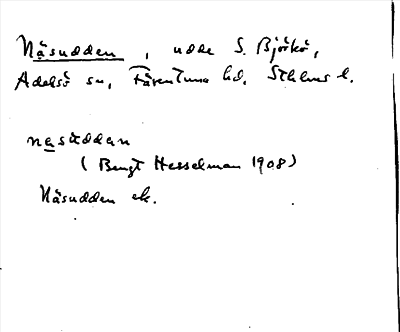 Näsudden, udde S. Björkö,
Adelsö sn, Färentuna hd, Sthlms l.
nasúddan
(Bengt Hesselman 1908)
Näsudden ek.